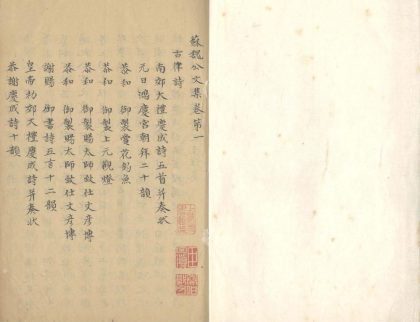 蘇魏公文集卷第一
古律詩
南郊大禮慶成詩五首并奏狀
元日鴻慶宮朝拜二十韻
恭和 御製賞花釣魚
恭和 御製上元觀燈
恭和 御製賜太師致仕文彥博
恭和 御製賜太師致仕文彥博
謝賜 御書詩五言十二韻
皇帝初郊大禮慶成詩并奏狀
恭謝慶成詩十韻